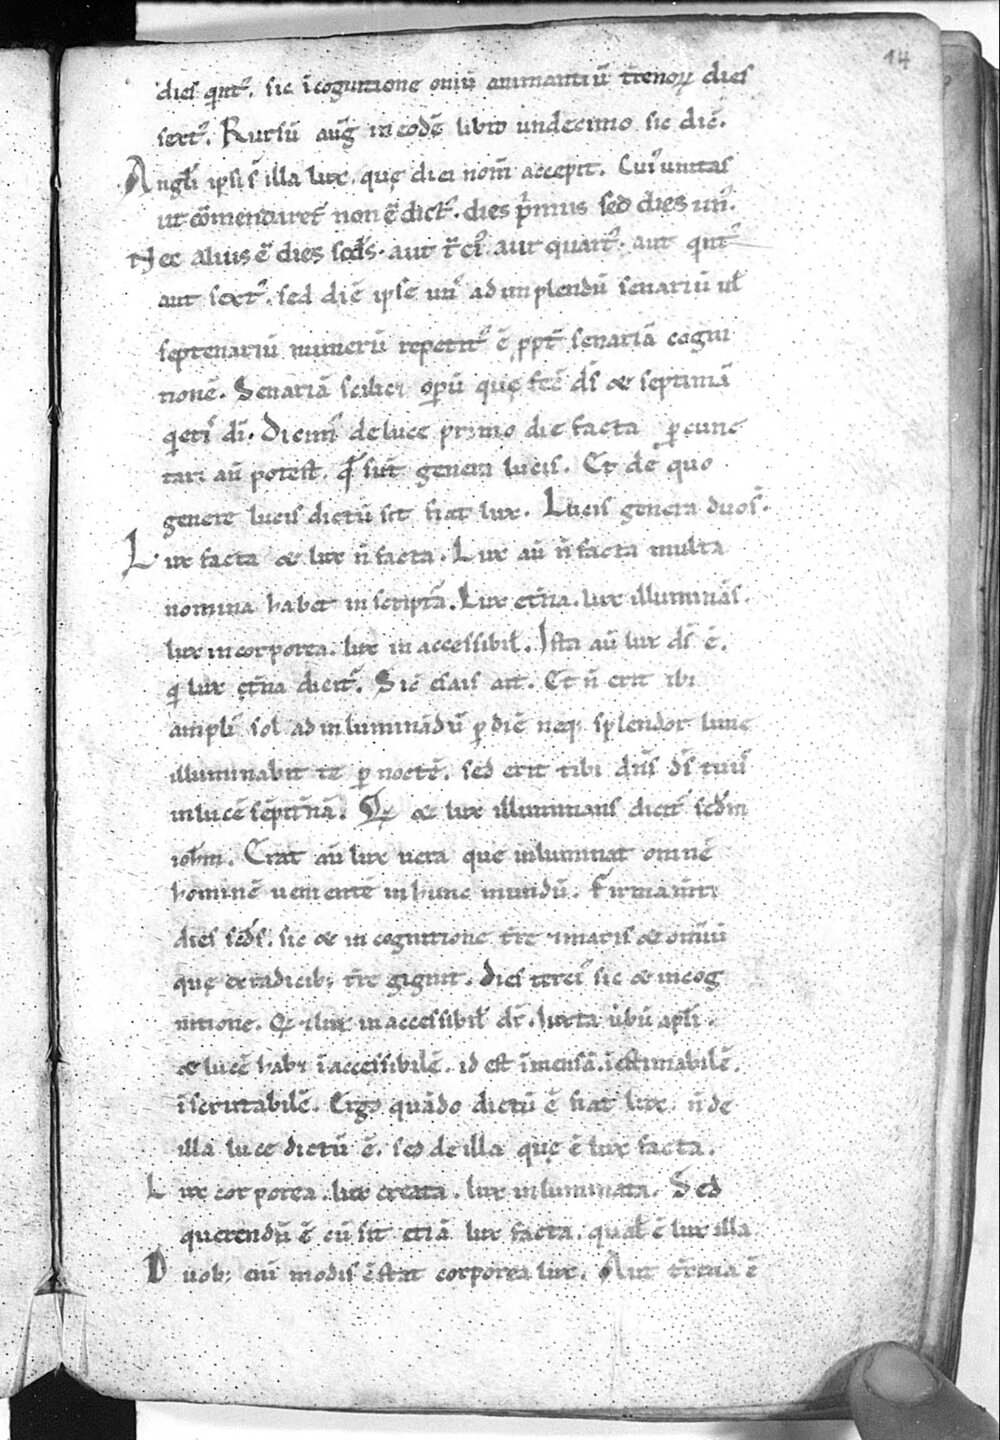 14
dies q̇int᷒. sic ī cognitione oniū animantiū t̄renoꝝ dies
sext᷒. Rursū auḡ in eodē libro undecimo sic diē.
Angl̄i ipsi s̄ illa lux, quę diei nom̄ accepit. Cui᷒ unitas
ut cōmendaret᷒ non ē dict᷒. dies p̄mus sed dies un᷒.
Nec alius ē dies sc̄ds. aut t̄ci᷒ aut quart᷒. aut q̇nt᷒
aut sext᷒. sed diē ipse un᷒ ad implendū senariū ul̄
septenariū numerū repetit᷒ ē ꝓpt̄ senariā cogni
tionē. Senariā scilicet oꝑū quę fecē d̄s & septimā
q̇eti᷒ dī. Dicim᷒ de luce primo die facta ꝑcunc
tari aū potest. q̄ sūt genera lucis. Et dē quo
genere lucis dictū sit fiat lux. Lucis genera duo s̄.
Lux facta & lux n̄ facta. Lux aū n̄ facta multa
nomina habet in scriptā. Lux et̄na. lux illuminās.
lux incorporea. lux in accessibil̄. Ista aū lux d̄s ē.
q̇ lux ęt̄na dicit᷒. Sic esaias ait. Et n̄ erit tibi
ampli᷒ sol ad inluminādū ꝑ diē neq; splendor lunę
illuminabit te ꝑ noctē. sed erit tibi dn̄s d̄s tuus
in lucē sēpit̄nā. & lux illuminans dicit᷒ scd̄m
ioh̄m. Erat aū lux uera que inluminat omnē
hominē uenientē in hunc mundū. Firmam̄ti
dies scd̄s. sic & in cognitione t̄re ⁊ maris & om̄iū
quę ex radicib; t̄re gignit. Dies terci᷒ sic & in cog
nitione. lux in accessibil̄ dr̄. Iuxta ūbū apl̄i.
& lucē habet ī accessibilē. id est īmensā. ī estimabilē.
ī scrutabilē. Ergo quādo dictū ē fiat lux. n̄ de
illa luce dictū ē. sed de illa quę ē lux facta.
Lux corporea. lux creata. lux inluminata. Sed
querendū ē cū sit etiā lux facta. qual̄ ē lux illa
Duob; enī modis ēstat corporea lux. Aut t̄rena ē